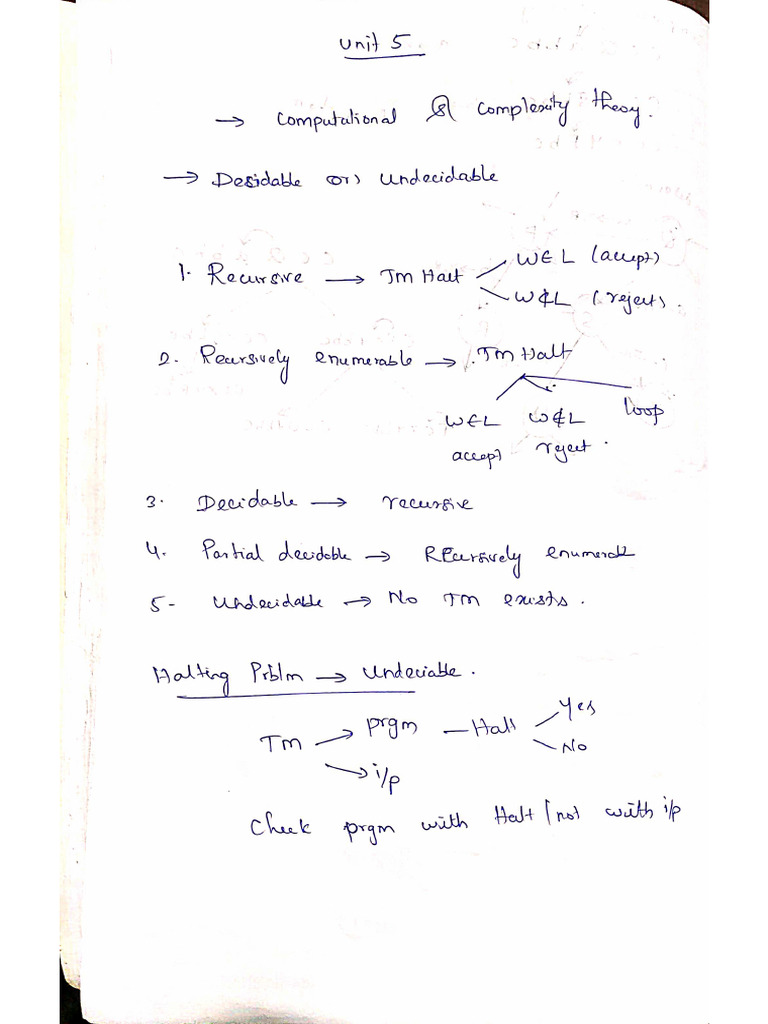 Unit 5
→ Computational & Complexity theory.
→ Desidable or) Undecidable
1. Recursive → TM Halt
W∈L (accept)
W∉L (reject).
2. Recursively enumerable → TM Halt
W∈L W∉L loop
accept reject.
3. Decidable → recursive
4. Partial decidable → REcursively enumerable
5- Undecidable → No TM exists.
Halting Prblm → Undeciable.
TM → prgm — Halt
Yes
No
→ i/p
Check prgm with Halt/not with i/p